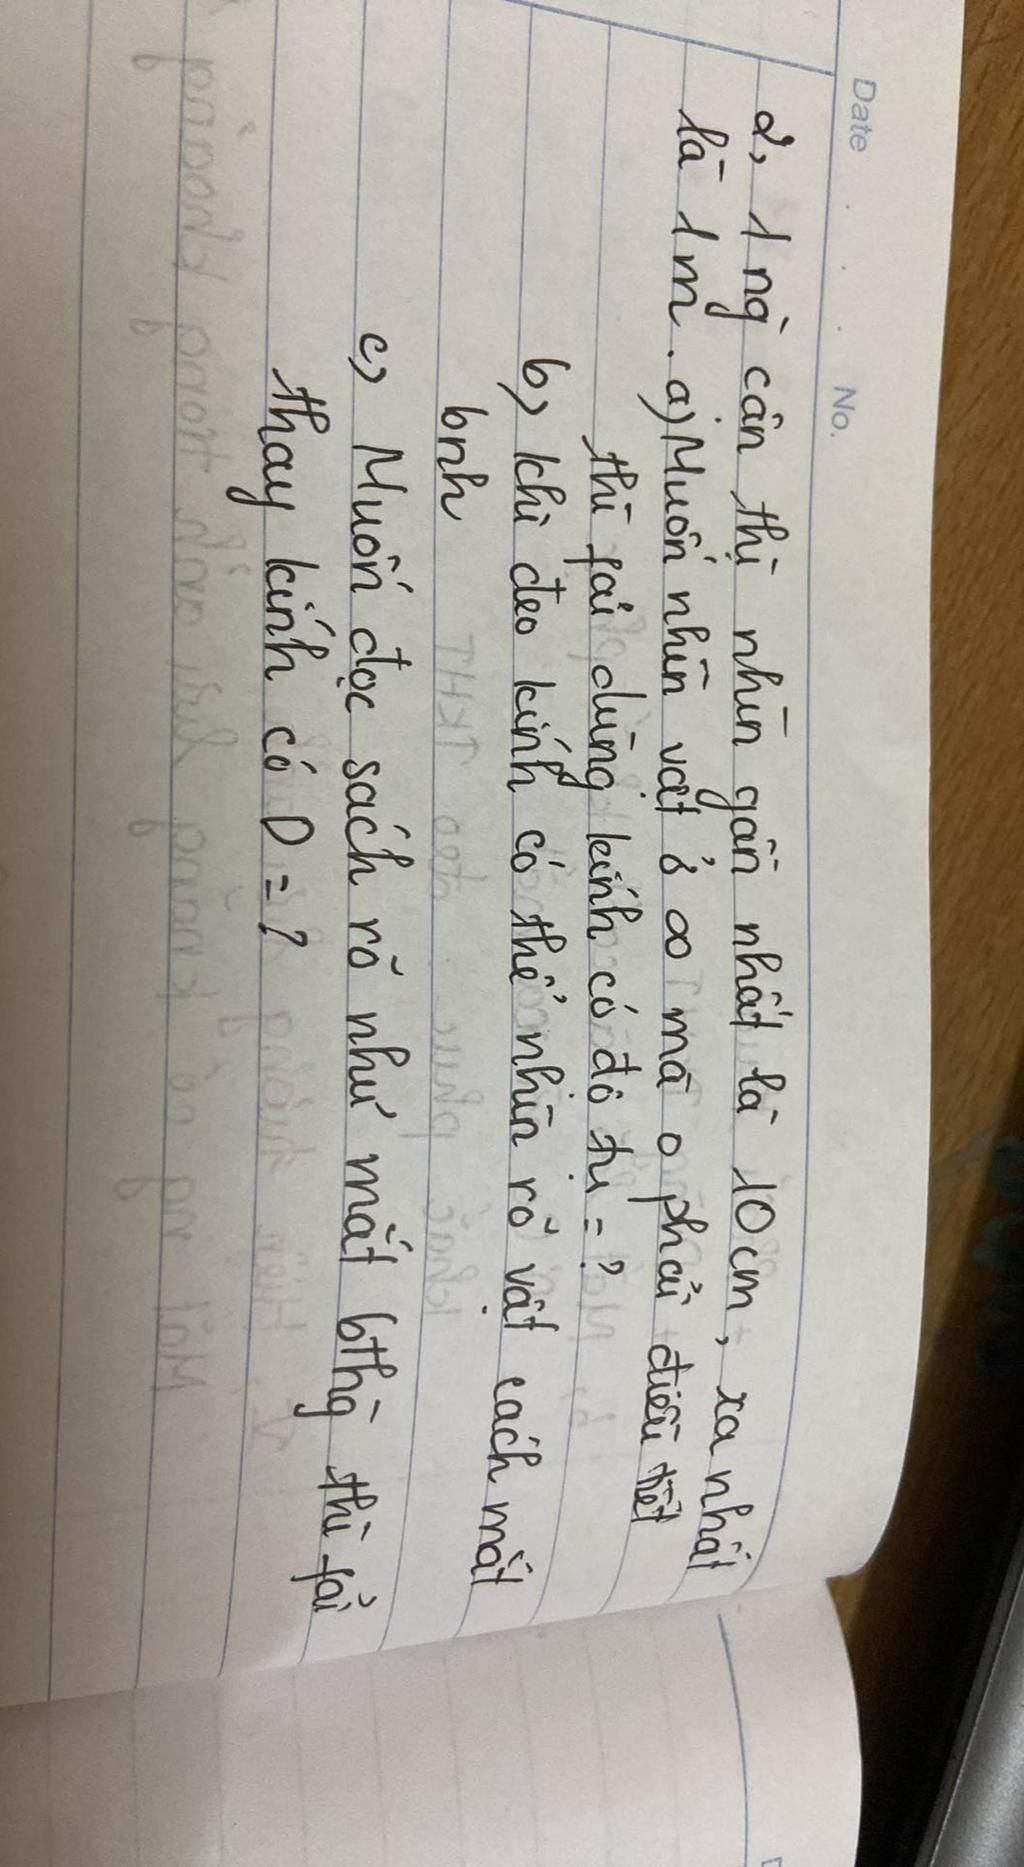 Date No.
2, 1 ng` cận thị nhìn gần nhất là 10cm, xa nhất
là 1m. a) Muốn nhìn vật ở ∞ mà o phải điều tiết
thì fải dùng kính có độ tụ = ?
b) khi đeo kính có thể nhìn rõ vật cách mắt
bnh
c) Muốn đọc sách rõ như mắt bthg` thì fải
thay kính có D = ?